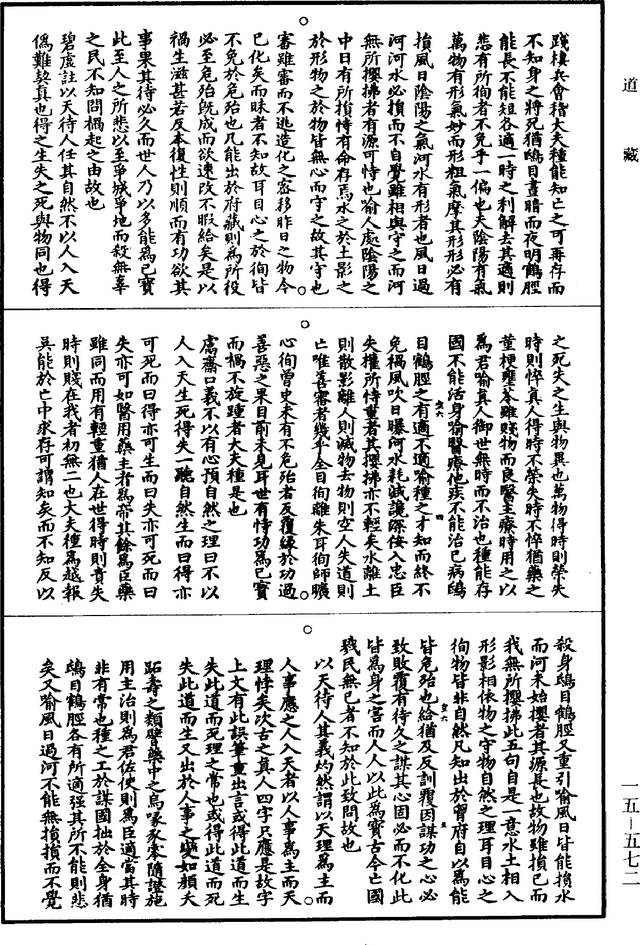 道藏
踐棲兵會稽大夫種能知亡之可再存而
不知身之將死猶鴟目晝暗而夜明鶴脛
能長不能短各適一時之利解去其適則
悲有所徇者不免乎一偏也夫陰陽有氣
萬物有形氣妙而形粗氣摩其形形必有
損風日陰陽之氣河水有形者也風日過
河河水必損而不自覺雖相與守之而河
無所攖拂者有源可恃也喻人處陰陽之
中日有所損恃有命存焉水之於土影之
於形物之於物皆無心而守之故其守也
審雖審而不逃造化之密移昨日之物今
已化矣而昧者不知故耳目心之於徇皆
不免於危殆也凡能出於府藏則為所役
必至危殆既成而欲速改不暇給矣是以
禍生滋甚若反本復性則順而有功欲其
事果其待必久而世人乃以多能為己寶
此至人之所悲以至爭城爭地而殺無辜
之民不知問禍起之由故也
碧虛註以天待人任其自然不以人入天
偽難契真也得之生失之死與物同也得
之死失之生與物異也萬物得時則榮失
時則悴真人得時不榮失時不悴猶藥之
堇梗壅苓雖賤物而良醫主療時用之以
為君喻真人御世無時而不治也種能存
國不能活身喻醫療他疾不能治己病鴟
目鶴脛之有適不適喻種之才知而終不
免禍風吹日曝河水耗減讒深佞入忠臣
失權所恃重者其攖拂亦不輕矣水離土
則散影離人則滅物去物則空人失道則
亡唯善審者幾乎全目徇離朱耳徇師曠
心徇曾史未有不危殆者反覆緣於功過
善惡之果目前未見耳世有恃功為己寶
而禍不旋踵者大夫種是也
鬳齋口義不以有心預自然之理曰不以
人入天生死得失一聽自然生而曰得亦
可死而曰得亦可生而曰失亦可死而曰
失亦可如醫用藥主者為帝其餘為臣藥
雖同而用有輕重猶人在世得時則貴失
時則賤在我者初無二也大夫種為越報
吳能於亡中求存可謂知矣而不知反以
殺身鴟目鶴脛又重引喻風日皆能損水
而河未始攖者其源長也故物雖損己而
我無所攖拂此五句自是一意水土相入
形影相依物之守物自然之理耳目心之
徇物皆非自然凡知出於胷府自以為能
皆危殆也給猶及反訓覆因謀功之心必
致敗覆有待久之謀其心固必而不化此
皆為身之害而人人以此為寶古今亡國
戮民無已者不知於此致問故也
以天待人其義灼然謂以天理為主而
人事應之人入天者以人事為主而天
理悖矣次古之真人四字只應是故字
上文有此誤筆重出言或得此道而生
失此道而死理之常也或得此道而死
失此道而生又出於人事之變如顏夭
跖壽之類譬藥中之烏喙豕零隨證施
用主治則為君佐使則為臣適當其時
非有常也種之工於謀國拙於全身猶
鴟目鶴脛各有所適强其所不能則悲
矣又喻風日過河不能無損損而不覺
一五—五七二